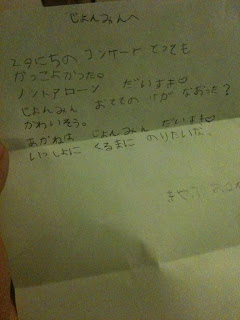 じょんみんへ
29にちの コンサート とっても
かっこよかった。
ノットアローン だいすき♡
じょんみん おてての けが なおった?
かわいそう。
あかねは じょんみん だいすき♡
いっしょに くるまに のりたいな。